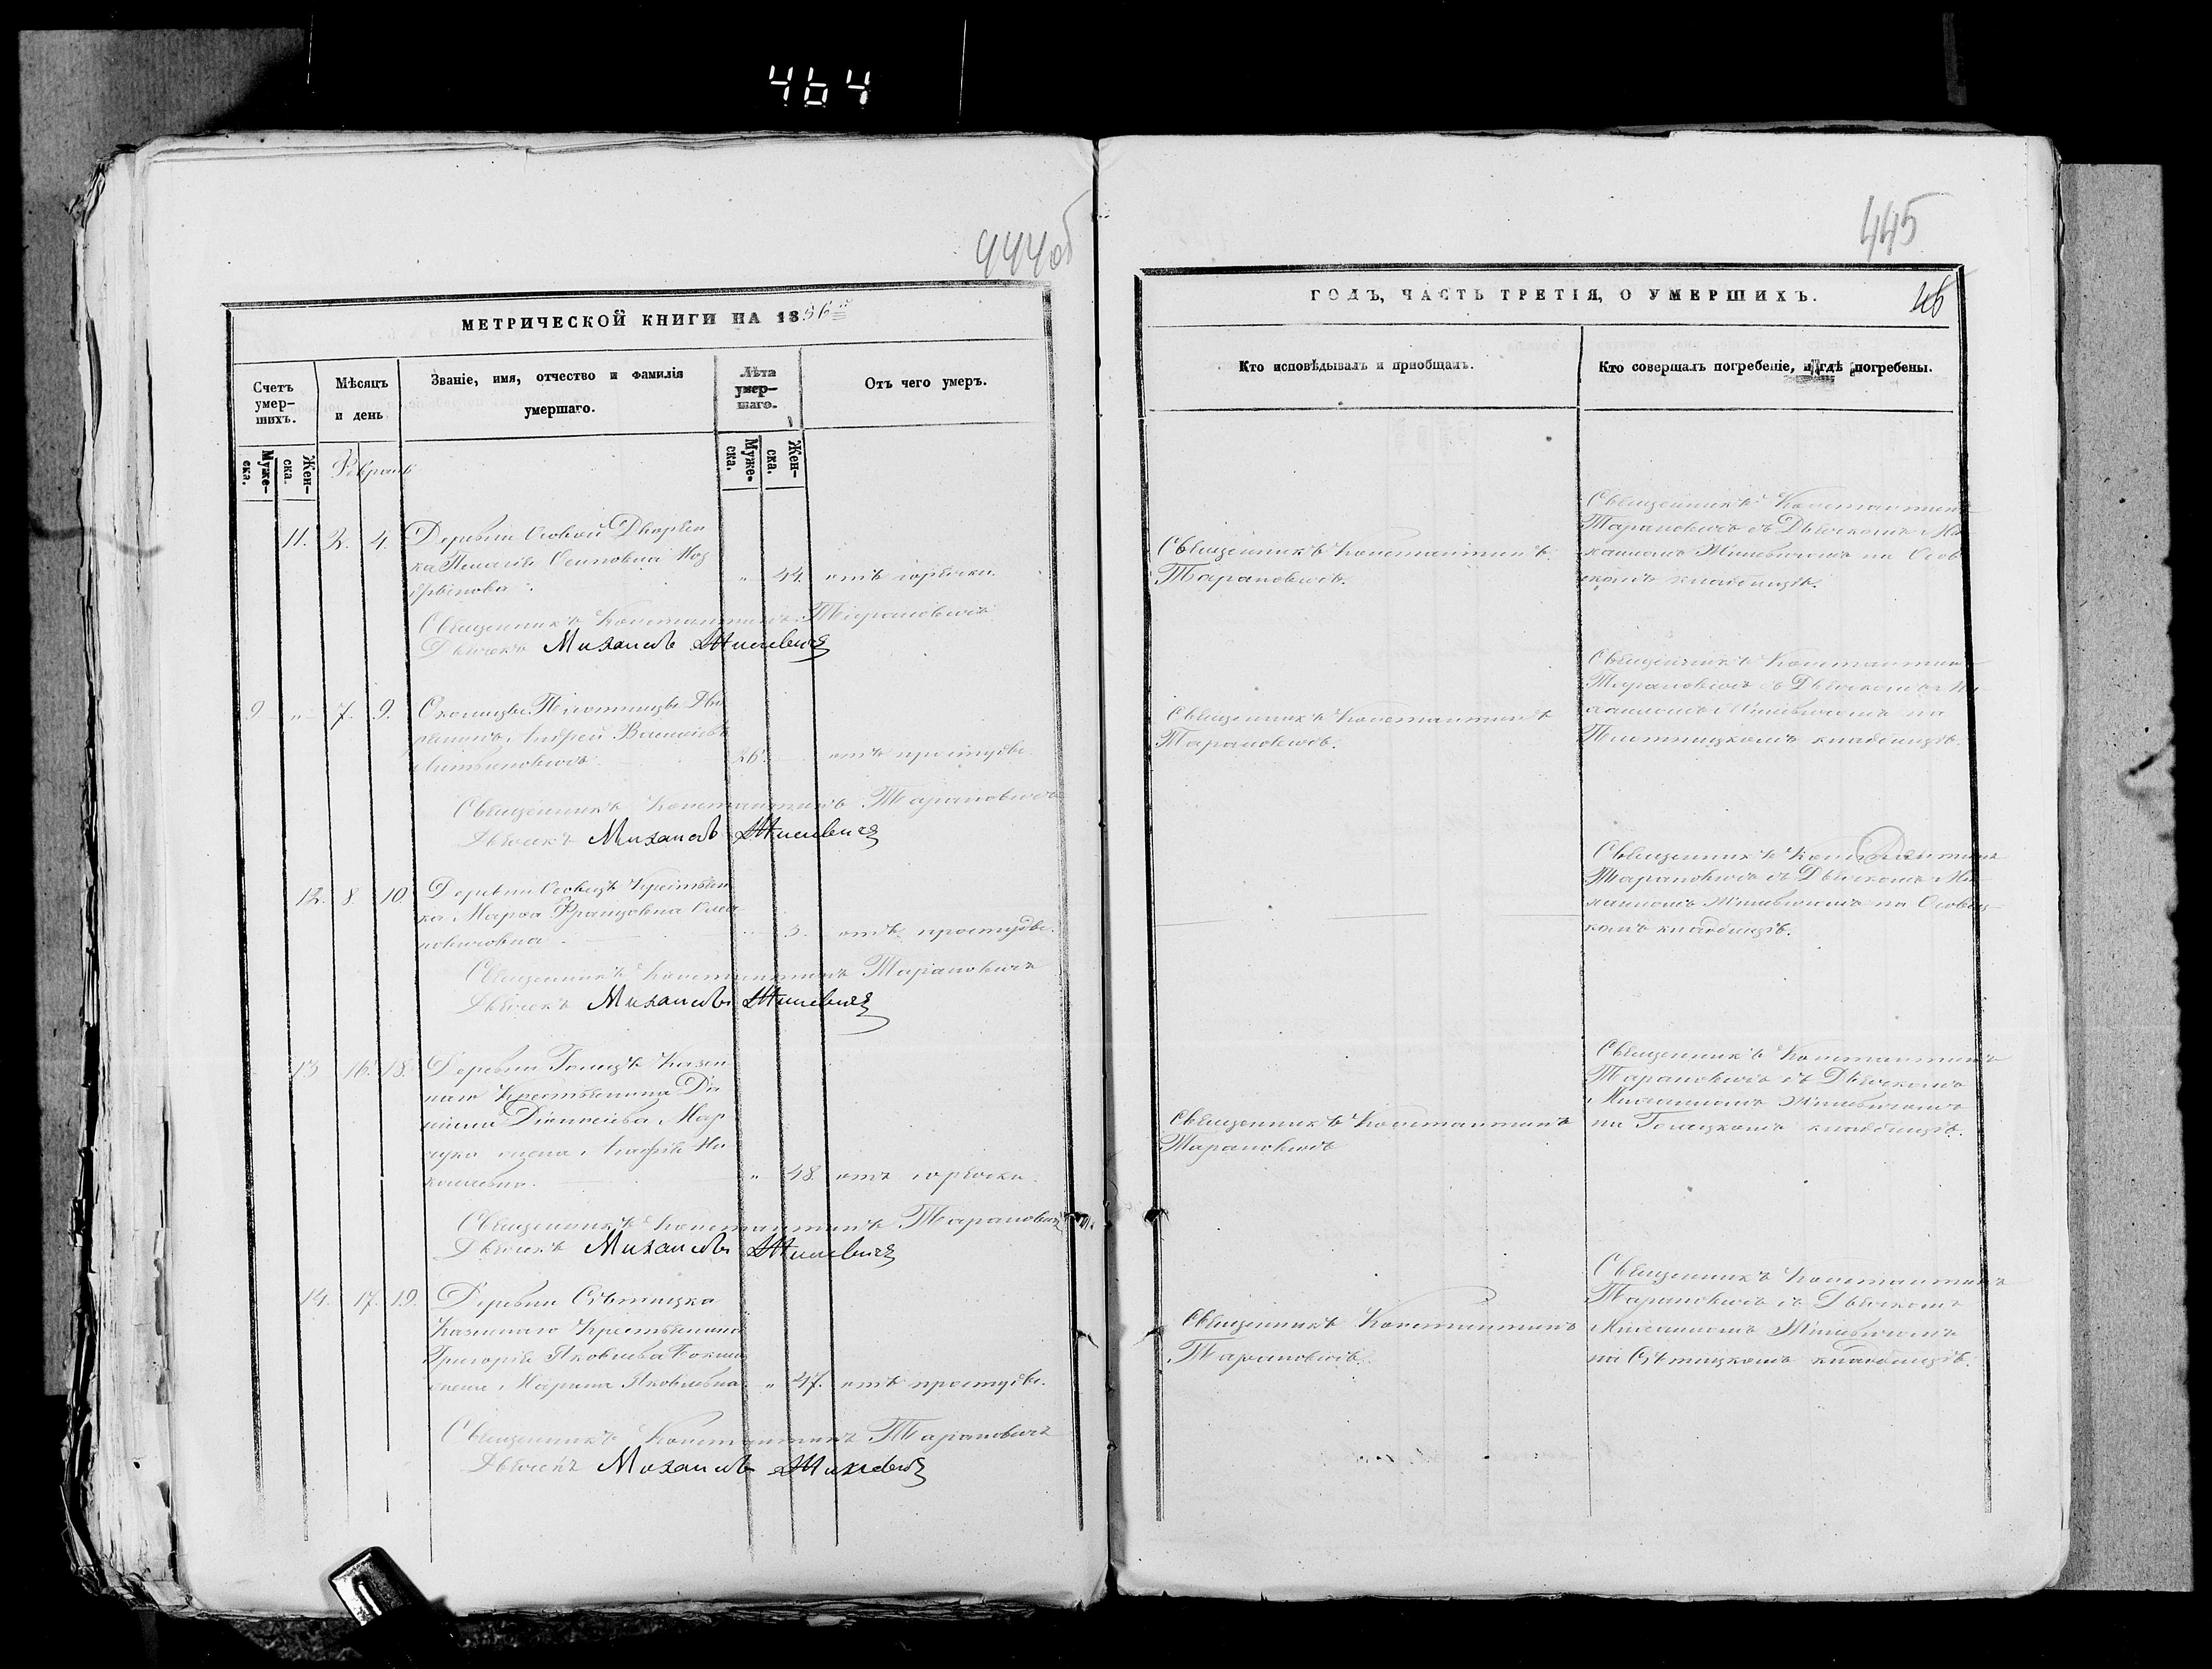 464
444об
МЕТРИЧЕСКОЙ КНИГИ НА 1856й
Счетъ умер-шихъ.
Мѣсяцъ и день
Званіе, имя, отчество и фамилія умершаго.
Лѣта умер-шаго.
Отъ чего умеръ.
Муже-ска.
Жен-ска.
Муже-ска.
Жен-ска.
Февраль
11. 2. 4. Деревни Осовой Дворян
ка Осиповна Коз
" 44. отъ горячки.
Священникъ Константинъ Тарановичъ
Дьячекъ Михаилъ Жилевичъ
9 " 7. 9. Околицы Плотницы Дво
рянинъ Андрей Васильевъ
26. отъ простуды.
Священникъ Константинъ Тарановичъ
Дьячекъ Михаилъ Жилевичъ
12. 8. 10. Деревни Осовцъ Крестьян
ка Марѳа Францовна
3. отъ простуды.
Священникъ Константинъ Тарановичъ
Дьячекъ Михаилъ Жилевичъ
13 16. 18. Деревни Казен
наго Крестьянина Да
нила Діонисіева Мар
жена Агафія Ми
хаилова. " 48. отъ горячки.
Священникъ Константинъ Тарановичъ
Дьячекъ Михаилъ Жилевичъ
14. 17. 19. Деревни Сѣтицка
Казеннаго Крестьянина
Григорія Яковлева
жена Марина Яковлевна " 47. отъ простуды.
Священникъ Константинъ Тарановичъ
Дьячекъ Михаилъ Жилевичъ
445
ГОДЪ, ЧАСТЬ ТРЕТІЯ, О УМЕРШИХЪ.
46
Кто исповѣдывалъ и пріобщалъ.
Кто совершалъ погребеніе, и гдѣ погребены.
Священникъ Константинъ
Тарановичъ.
Священникъ Константинъ
Тарановичъ съ Дьячкомъ Ми
хаиломъ Жилевичемъ на Осов
скомъ кладбищѣ.
Священникъ Константинъ
Тарановичъ.
Священникъ Константинъ
Тарановичъ съ Дьячкомъ Ми
хаиломъ Жилевичемъ на
Плотницкомъ кладбищѣ.
Священникъ Константинъ
Тарановичъ съ Дьячкомъ Ми
хаиломъ Жилевичемъ на Осовец
комъ кладбищѣ.
Священникъ Константинъ
Тарановичъ
Священникъ Константинъ
Тарановичъ съ Дьячкомъ
Михаиломъ Жилевичемъ
на кладбищѣ.
Священникъ Константинъ
Тарановичъ.
Священникъ Константинъ
Тарановичъ съ Дьячкомъ
Михаиломъ Жилевичемъ
на Сѣтицкомъ кладбищѣ.